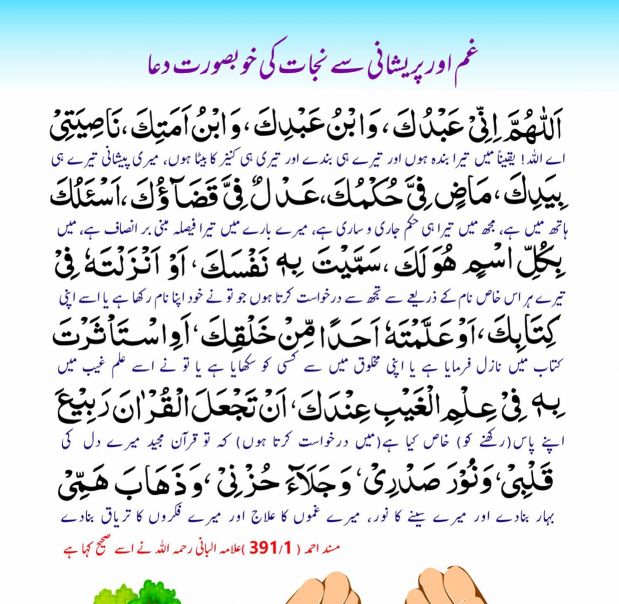 غم اور پریشانی سے نجات کی خوبصورت دعا
اَللّٰهُمَّ اِنِّیْ عَبْدُكَ، وَابْنُ عَبْدِكَ، وَابْنُ اَمَتِكَ، نَاصِيَتِیْ
اے اللہ! یقیناً میں تیرا بندہ ہوں اور تیرے ہی بندے اور تیری ہی کنیز کا بیٹا ہوں، میری پیشانی تیرے ہی
بِيَدِكَ، مَاضٍ فِیَّ حُكْمُكَ، عَدْلٌ فِیَّ قَضَآؤُكَ، اَسْئَلُكَ
ہاتھ میں ہے، مجھ میں تیرا ہی حکم جاری و ساری ہے، میرے بارے میں تیرا فیصلہ مبنی بر انصاف ہے، میں
بِكُلِّ اسْمٍ هُوَ لَكَ، سَمَّيْتَ بِهٖ نَفْسَكَ، اَوْ اَنْزَلْتَهٗ فِیْ
تیرے ہر اس خاص نام کے ذریعے سے تجھ سے درخواست کرتا ہوں جو تو نے خود اپنا نام رکھا ہے یا اسے اپنی
كِتَابِكَ، اَوْ عَلَّمْتَهٗ اَحَدًا مِّنْ خَلْقِكَ، اَوِ اسْتَاْثَرْتَ
کتاب میں نازل فرمایا ہے یا اپنی مخلوق میں سے کسی کو سکھایا ہے یا تو نے اسے علم غیب میں
بِهٖ فِیْ عِلْمِ الْغَيْبِ عِنْدَكَ، اَنْ تَجْعَلَ الْقُرْاٰنَ رَبِيْعَ
اپنے پاس (رکھنے کو) خاص کیا ہے (میں درخواست کرتا ہوں) کہ تو قرآن مجید میرے دل کی
قَلْبِیْ، وَنُوْرَ صَدْرِیْ، وَجَلَآءَ حُزْنِیْ، وَذَهَابَ هَمِّیْ
بہار بنادے اور میرے سینے کا نور، میرے غموں کا علاج اور میرے فکروں کا تریاق بنادے
مسند احمد (391/1) علامہ البانی رحمہ اللہ نے اسے صحیح کہا ہے